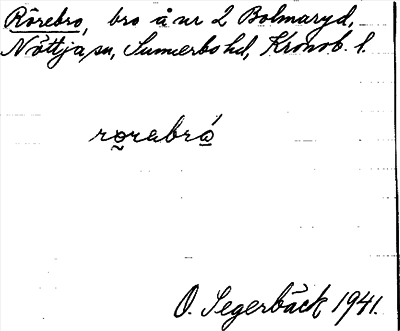 Rörebro, bro å nr 2 Bolmaryd,
Nöttja sn, Sunnerbo hd, Kronob. l.
rǫrabrǻ
O. Segerbäck 1941.